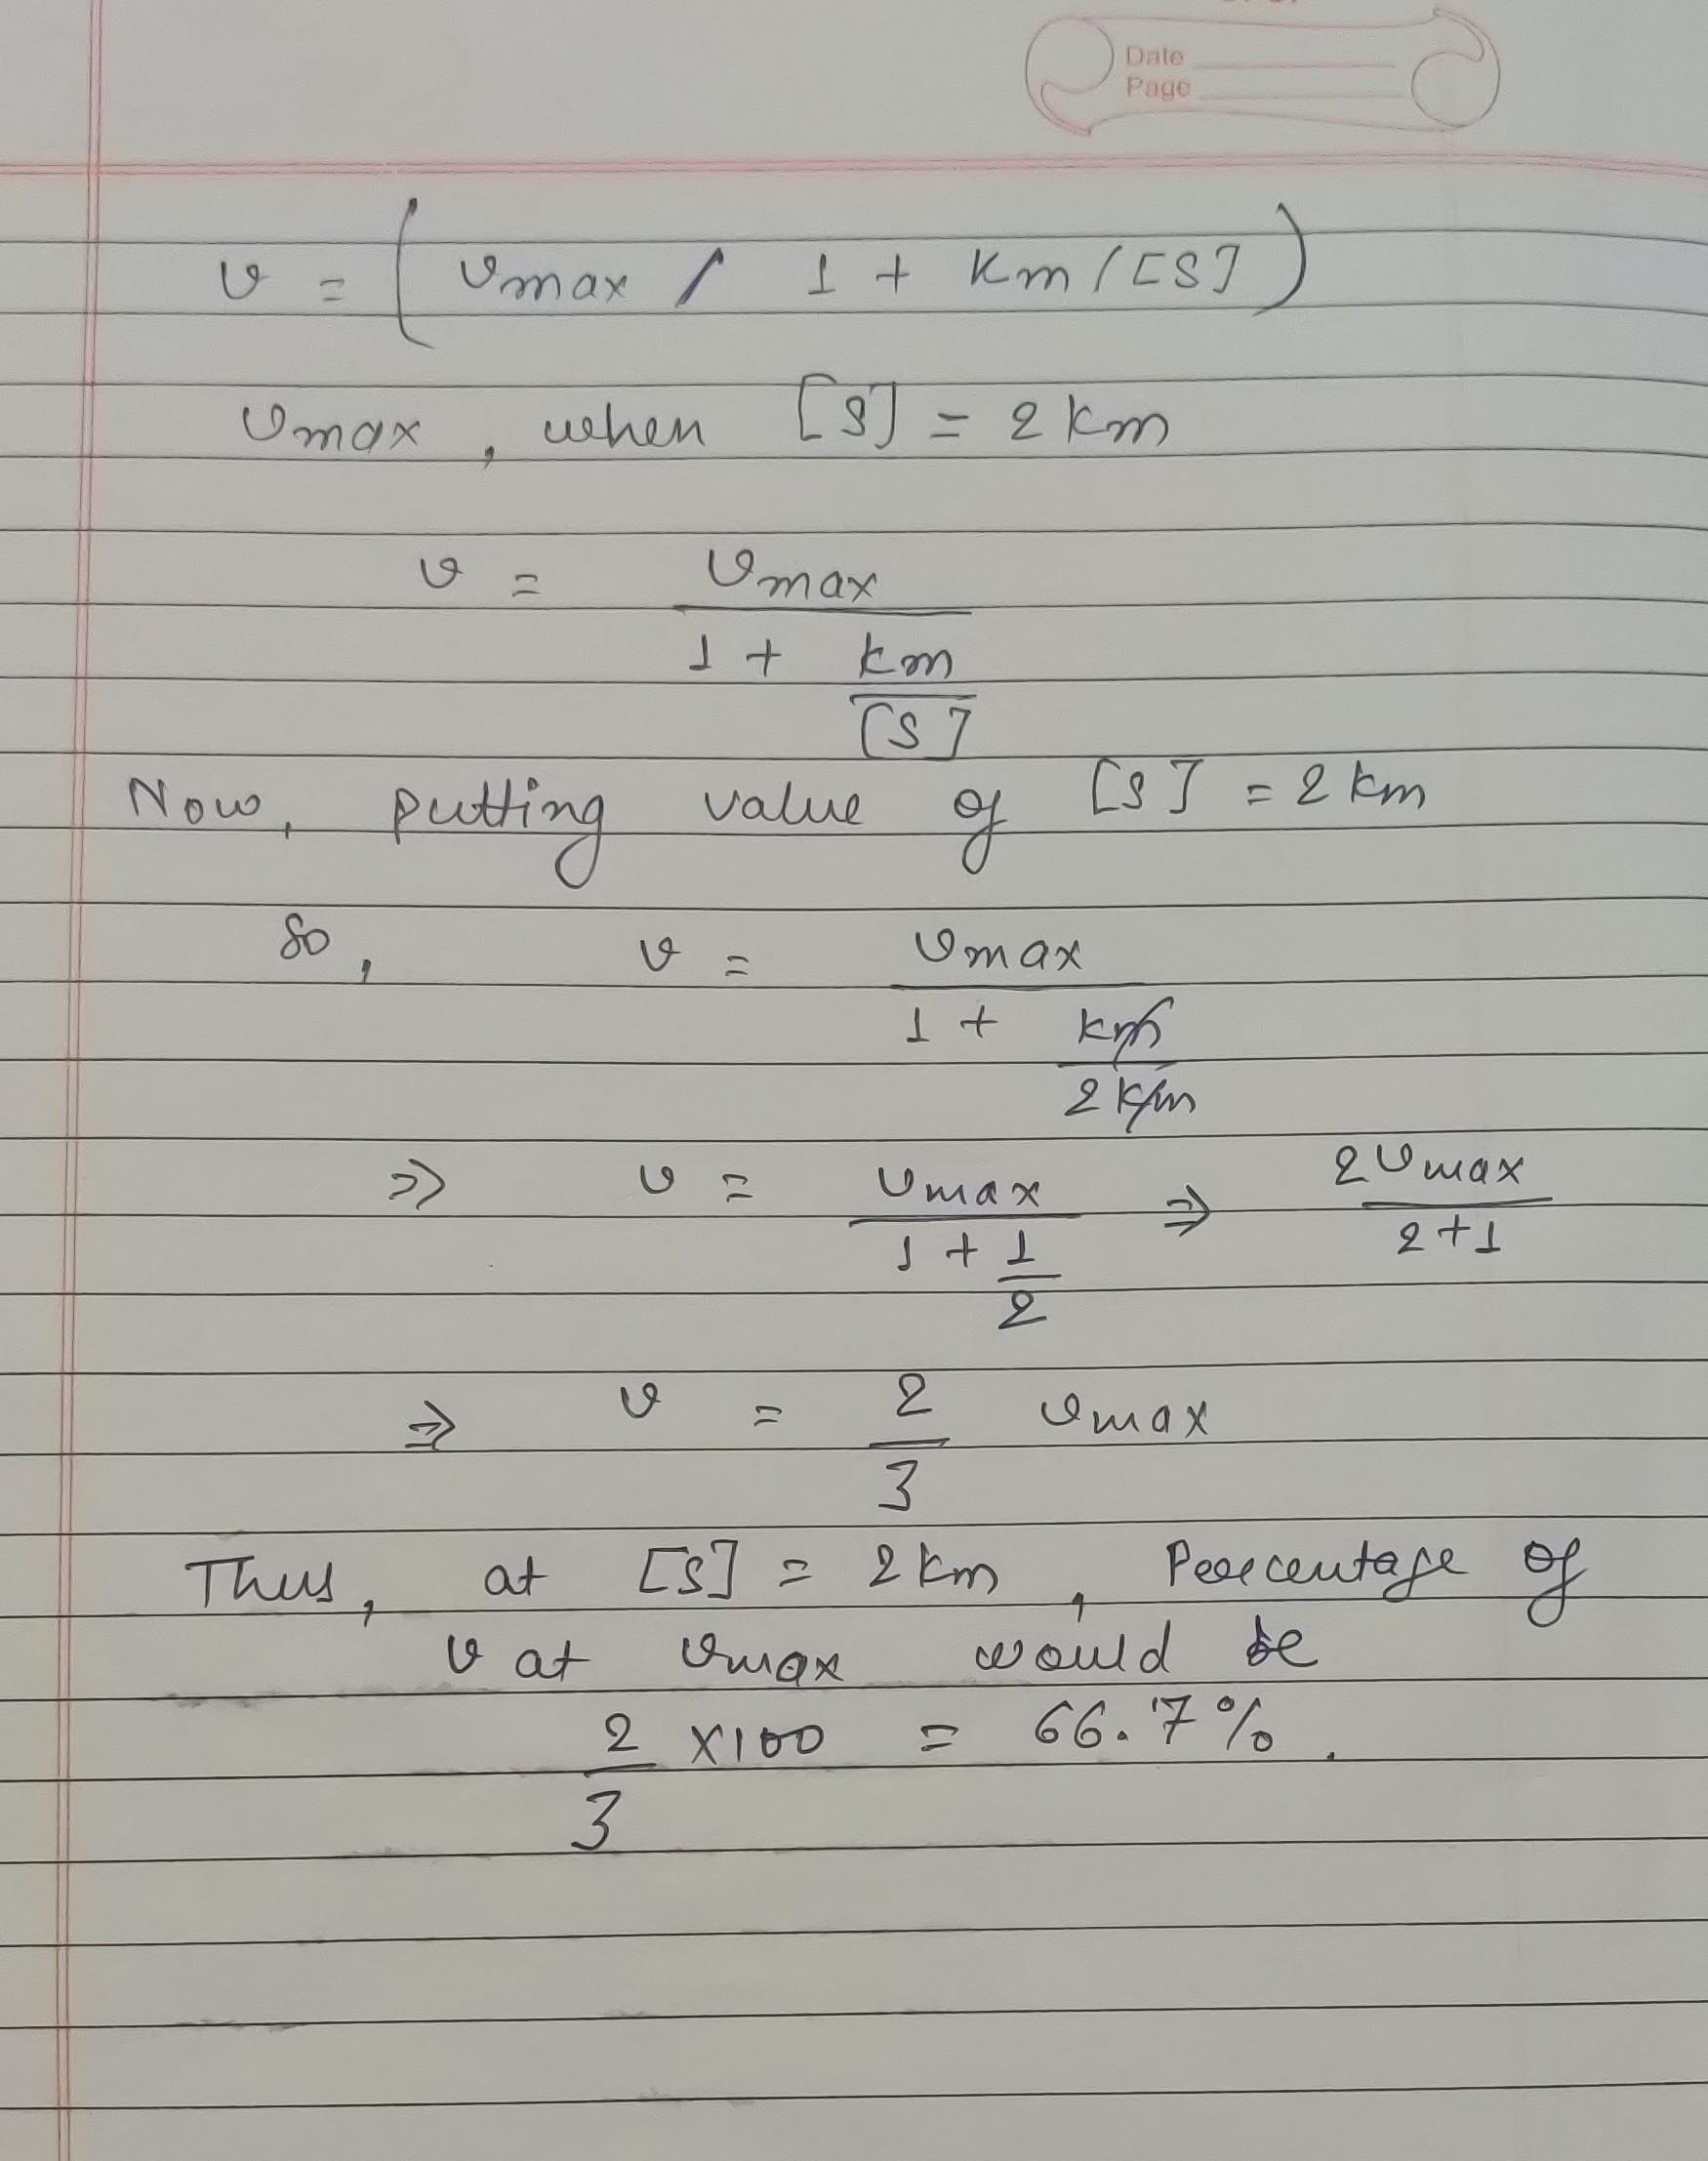 Date
Page
v = ( vmax / 1 + Km / [S] )
vmax , when [S] = 2 Km
v = vmax
1 + Km
[S]
Now, putting value of [S] = 2 Km
So, v = vmax
1 + Km
2 Km
⇒ v = vmax ⇒ 2 vmax
1 + 1 2+1
2
⇒ v = 2 vmax
3
Thus, at [S] = 2 Km , Percentage of
v at vmax would be
2 X100 = 66.7% .
3